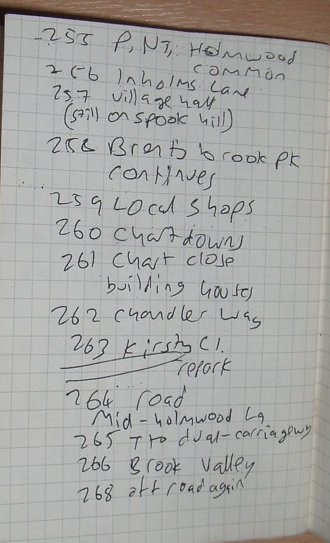 255 P, NT, Holmwood
common
256 Inholms Lane
257 village hall
(still on spook hill)
258 Brook PK
continues
259 Local shops
260 Chart downs
261 Chart close
building houses
262 Chandler Way
263 Kirsty Cl.
repark
264 road
Mid-holmwood La
265 T to dual-carriagewy
266 Brook Valley
268 off road again